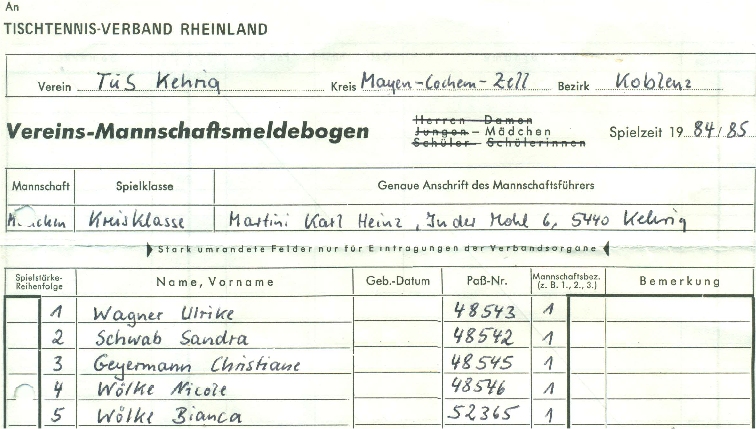 An
TISCHTENNIS-VERBAND RHEINLAND
Verein TuS Kehrig Kreis Mayen-Cochem-Zell Bezirk Koblenz
Vereins-Mannschaftsmeldebogen
Herren – Damen
Jungen – Mädchen
Schüler – Schülerinnen
Spielzeit 19 84/85
Mannschaft Spielklasse Genaue Anschrift des Mannschaftsführers
Kreisklasse Martini Karl Heinz, In der Mohl 6, 5440 Kehrig
Stark umrandete Felder nur für Eintragungen der Verbandsorgane
Spielstärke-Reihenfolge Name, Vorname Geb.-Datum Paß-Nr. Mannschaftsbez. (z. B. 1., 2., 3.) Bemerkung
1 Wagner Ulrike 48543 1
2 Schwab Sandra 48542 1
3 Geyermann Christiane 48545 1
4 Wölke Nicole 48546 1
5 Wölke Bianca 52365 1